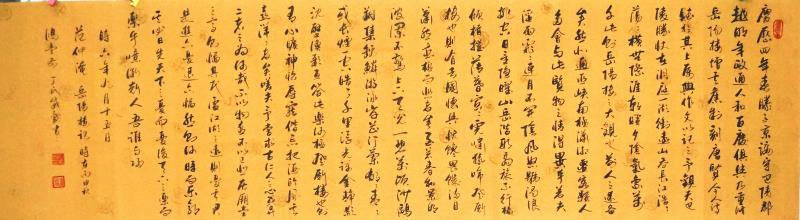 慶曆四年春滕子京謫守巴陵郡
越明年政通人和百廢俱興乃重修
岳陽樓增其舊制刻唐賢今人詩
賦於其上屬予作文以記之予觀夫巴
陵勝狀在洞庭一湖銜遠山吞長江浩浩
蕩蕩橫無際涯朝暉夕陰氣象萬
千此則岳陽樓之大觀也前人之述備
矣然則北通巫峽南極瀟湘遷客騷人
多會於此覽物之情得無異乎若夫
淫雨霏霏連月不開陰風怒號濁浪
排空日星隱曜山岳潛形商旅不行檣
傾楫摧薄暮冥冥虎嘯猿啼登斯
樓也則有去國懷鄉憂讒畏譏滿目
蕭然感極而悲者矣至若春和景明
波瀾不驚上下天光一碧萬頃沙鷗
翔集錦鱗游泳岸芷汀蘭郁郁青青而
或長煙一空皓月千里浮光躍金靜影
沉璧漁歌互答此樂何極登斯樓也則
有心曠神怡寵辱偕忘把酒臨風其
喜洋洋者矣嗟夫予嘗求古仁人之心或異
二者之為何哉不以物喜不以己悲居廟堂
之高則憂其民處江湖之遠則憂其君
是進亦憂退亦憂然則何時而樂耶
其必曰先天下之憂而憂後天下之樂而
樂乎噫微斯人吾誰與歸
時六年九月十五日
范仲淹岳陽樓記 時在丙申秋